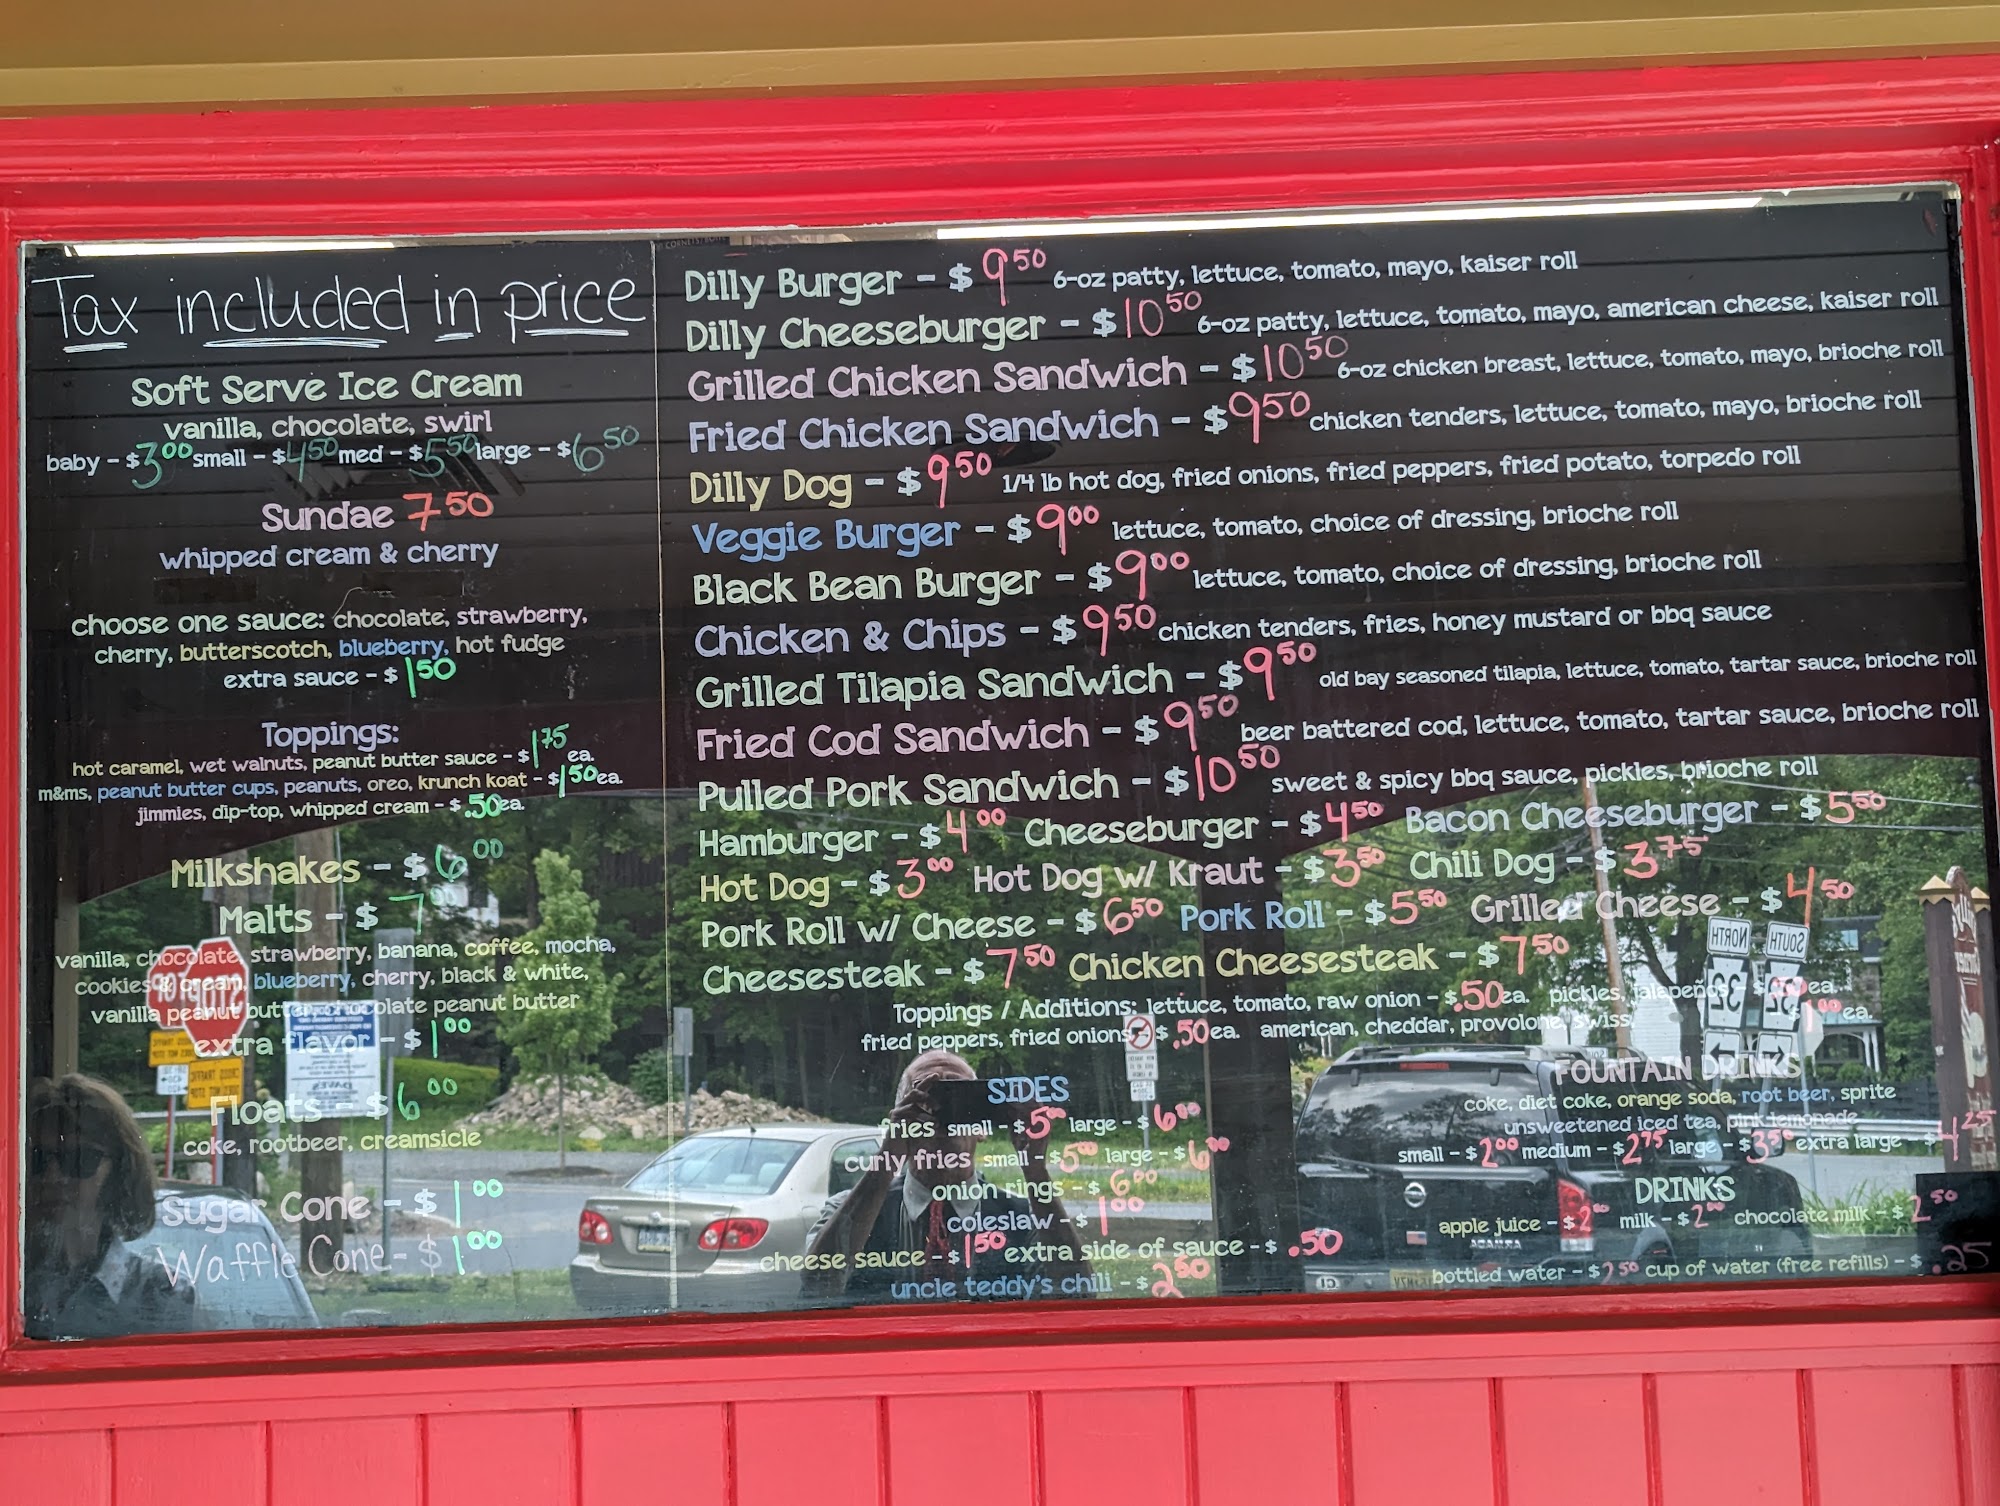 Tax included in price
Soft Serve Ice Cream
vanilla, chocolate, swirl
baby - $3.00 small - $4.50 med - $5.50 large - $6.50
Sundae 7.50
whipped cream & cherry
choose one sauce: chocolate, strawberry,
cherry, butterscotch, blueberry, hot fudge
extra sauce - $1.50
Toppings:
hot caramel, wet walnuts, peanut butter sauce - $1.75 ea.
m&ms, peanut butter cups, peanuts, oreo, krunch koat - $1.50 ea.
jimmies, dip-top, whipped cream - $.50 ea.
Milkshakes - $6.00
Malts - $7.00
vanilla, chocolate, strawberry, banana, coffee, mocha,
cookies & cream, blueberry, cherry, black & white,
vanilla peanut butter, chocolate peanut butter
extra flavor - $1.00
Floats - $6.00
coke, rootbeer, creamsicle
Sugar Cone - $1.00
Waffle Cone - $1.00
Dilly Burger - $9.50 6-oz patty, lettuce, tomato, mayo, kaiser roll
Dilly Cheeseburger - $10.50 6-oz patty, lettuce, tomato, mayo, american cheese, kaiser roll
Grilled Chicken Sandwich - $10.50 6-oz chicken breast, lettuce, tomato, mayo, brioche roll
Fried Chicken Sandwich - $9.50 chicken tenders, lettuce, tomato, mayo, brioche roll
Dilly Dog - $9.50 1/4 lb hot dog, fried onions, fried peppers, fried potato, torpedo roll
Veggie Burger - $9.00 lettuce, tomato, choice of dressing, brioche roll
Black Bean Burger - $9.00 lettuce, tomato, choice of dressing, brioche roll
Chicken & Chips - $9.50 chicken tenders, fries, honey mustard or bbq sauce
Grilled Tilapia Sandwich - $9.50 old bay seasoned tilapia, lettuce, tomato, tartar sauce, brioche roll
Fried Cod Sandwich - $9.50 beer battered cod, lettuce, tomato, tartar sauce, brioche roll
Pulled Pork Sandwich - $10.50 sweet & spicy bbq sauce, pickles, brioche roll
Hamburger - $4.00 Cheeseburger - $4.50 Bacon Cheeseburger - $5.50
Hot Dog - $3.00 Hot Dog w/ Kraut - $3.50 Chili Dog - $3.75
Pork Roll w/ Cheese - $6.50 Pork Roll - $5.50 Grilled Cheese - $4.50
Cheesesteak - $7.50 Chicken Cheesesteak - $7.50
Toppings / Additions: lettuce, tomato, raw onion - $.50 ea. pickles, jalapeños - ea.
fried peppers, fried onions - $.50 ea. american, cheddar, provolone, swiss $1.00 ea.
SIDES
fries small - $5.00 large - $6.00
curly fries small - $5.00 large - $6.00
onion rings - $6.00
coleslaw - $1.00
cheese sauce - $1.50 extra side of sauce - $.50
uncle teddy's chili - $2.50
FOUNTAIN DRINKS
coke, diet coke, orange soda, root beer, sprite
unsweetened iced tea, pink lemonade
small - $2.00 medium - $2.75 large - $3.50 extra large - $4.25
DRINKS
apple juice - $2 milk - $2.00 chocolate milk - $2.50
bottled water - $2.50 cup of water (free refills) - $.25
NORTH
SOUTH
32
STOP